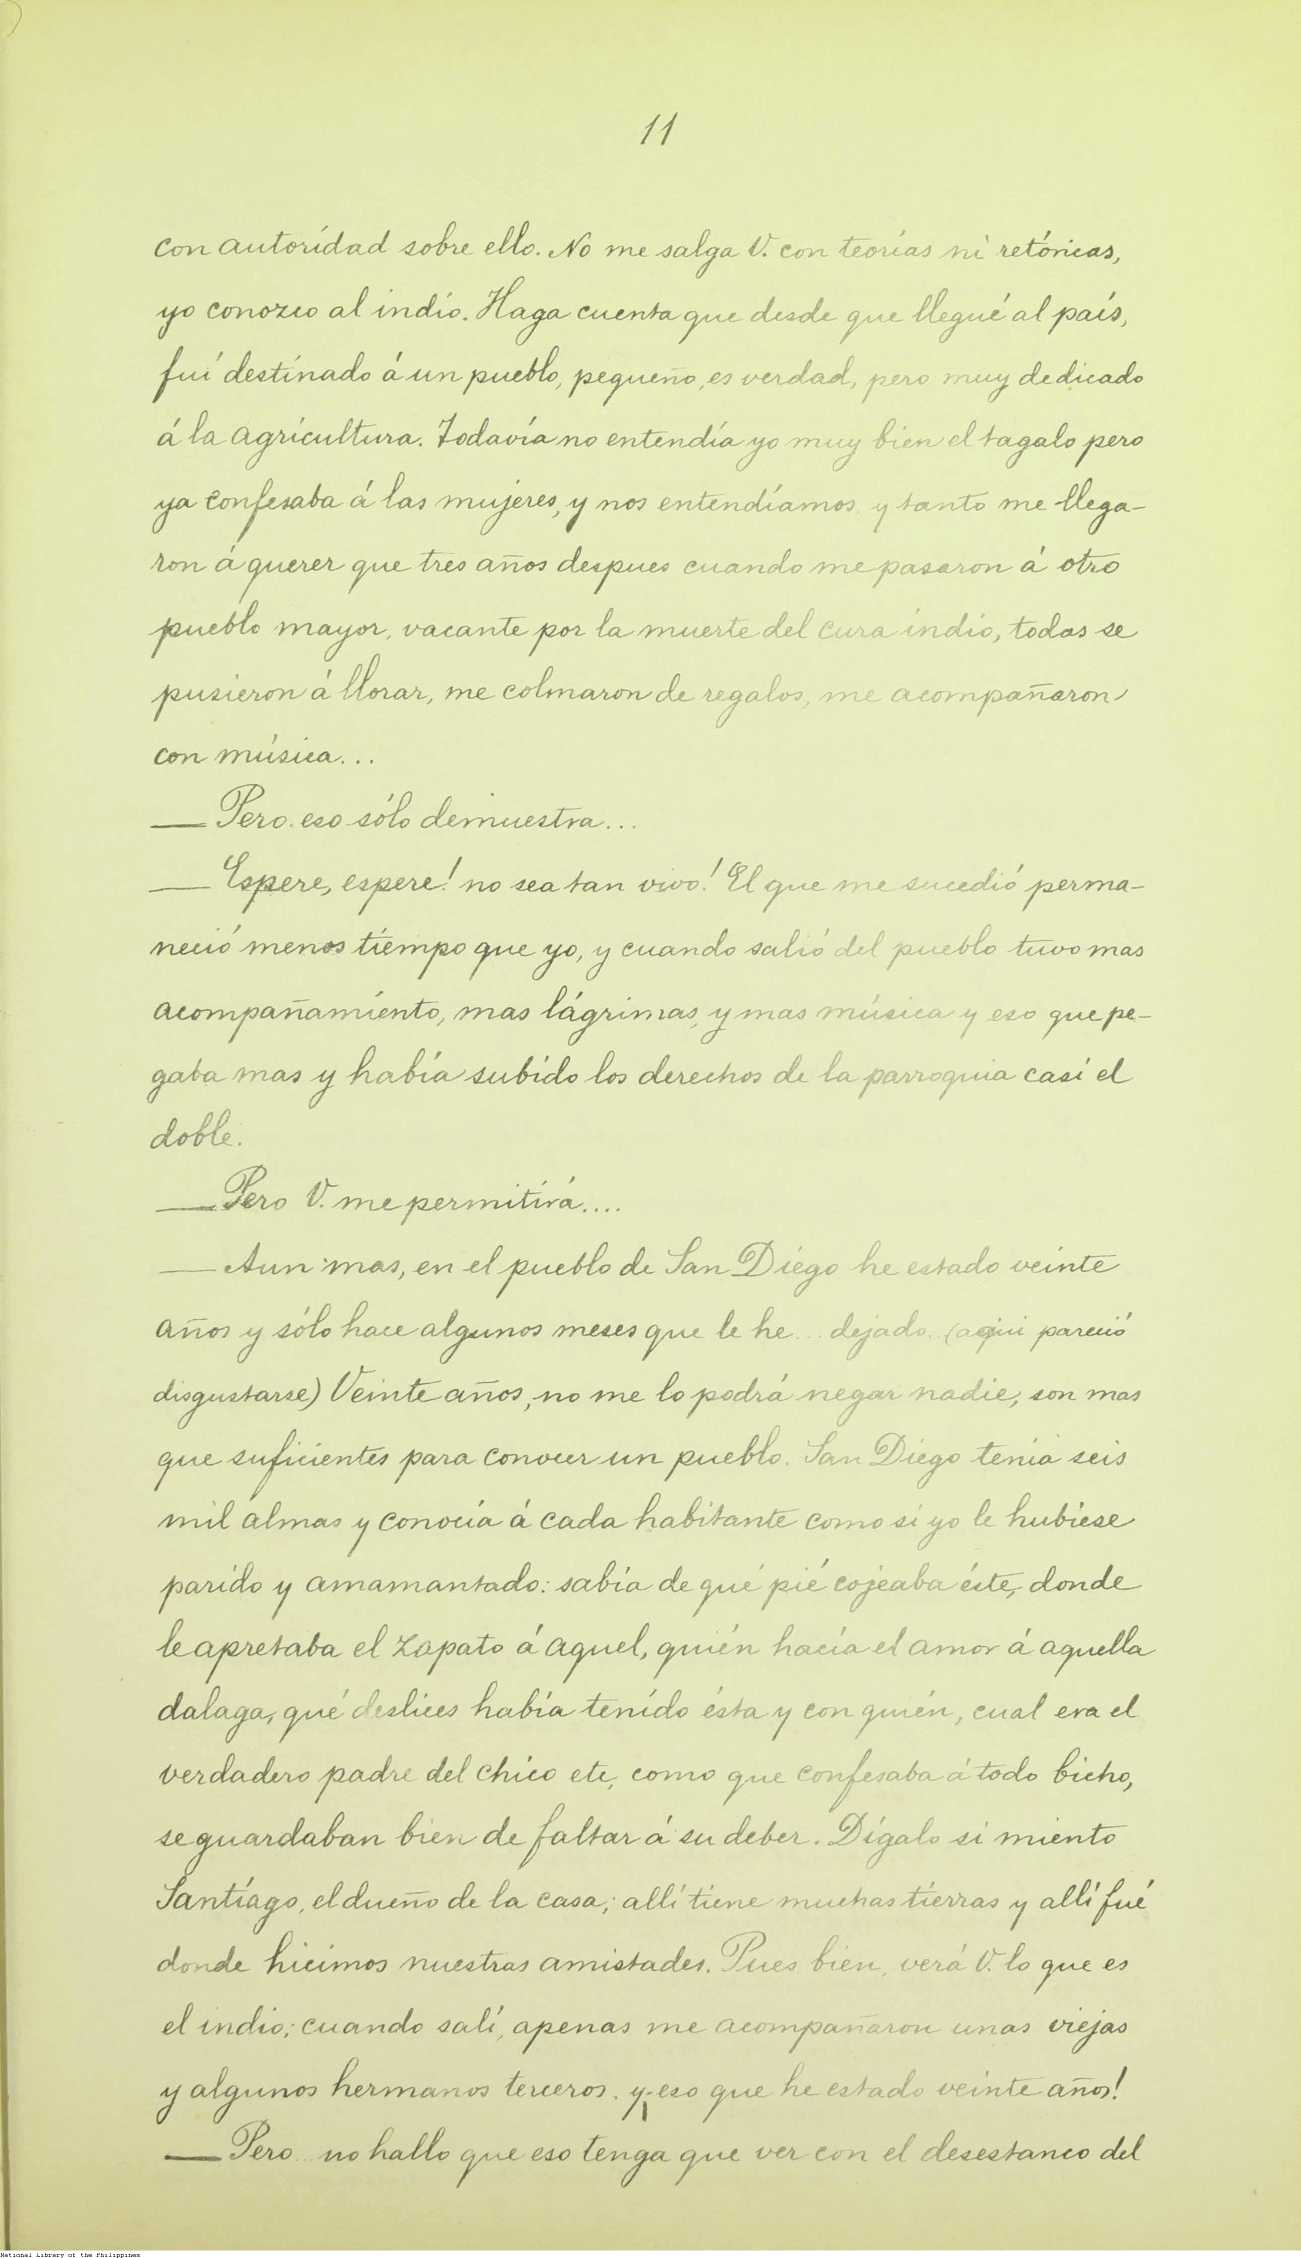 11
con autoridad sobre ello. No me salga V. con teorías ni retóricas,
yo conozco al indio. Haga cuenta que desde que llegué al país,
fuí destinado á un pueblo, pequeño, es verdad, pero muy dedicado
á la agricultura. Todavía no entendía yo muy bien el tagalo pero
ya confesaba á las mujeres, y nos entendíamos y tanto me llega-
ron á querer que tres años despues cuando me pasaron á otro
pueblo mayor, vacante por la muerte del cura indio, todas se
pusieron á llorar, me colmaron de regalos, me acompañaron
con música...
— Pero eso sólo demuestra...
— Espere, espere! no sea tan vivo! El que me sucedió perma-
neció menos tiempo que yo, y cuando salió del pueblo tuvo mas
acompañamiento, mas lágrimas, y mas música y eso que pe-
gaba mas y había subido los derechos de la parroquia casi el
doble.
— Pero V. me permitirá....
— Aun mas, en el pueblo de San Diego he estado veinte
años y sólo hace algunos meses que le he... dejado. (aquí pareció
disgustarse) Veinte años, no me lo podrá negar nadie, son mas
que suficientes para conocer un pueblo. San Diego tenía seis
mil almas y conocía á cada habitante como si yo le hubiese
parido y amamantado: sabía de qué pié cojeaba éste, donde
le apretaba el zapato á aquel, quién hacía el amor á aquella
dalaga, qué deslices había tenido ésta y con quién, cual era el
verdadero padre del chico etc, como que confesaba á todo bicho,
se guardaban bien de faltar á su deber. Dígalo si miento
Santíago, el dueño de la casa; allí tiene muchas tierras y allí fué
donde hicimos nuestras amistades. Pues bien, verá V. lo que es
el indio; cuando salí, apenas me acompañaron unas viejas
y algunos hermanos terceros. y eso que he estado veinte años!
— Pero... no hallo que eso tenga que ver con el desestanco del
National Library of the Philippines